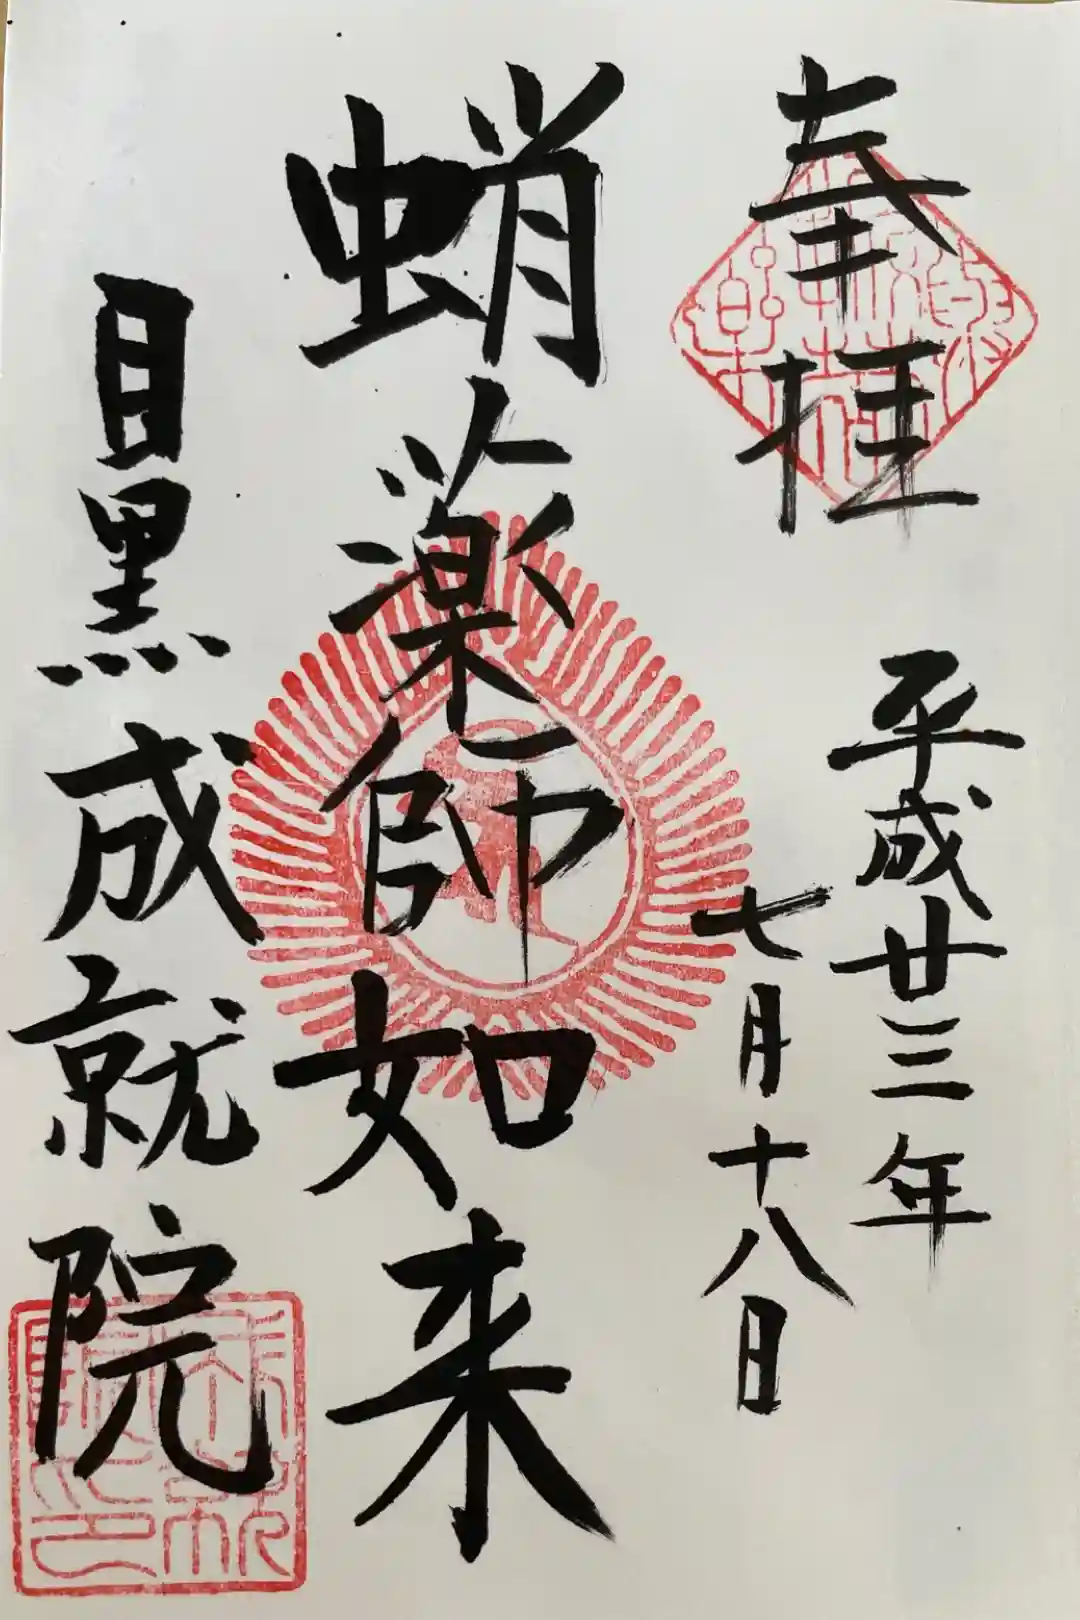 奉拝
平成廿三年
七月十八日
蛸薬師如来
目黒成就院